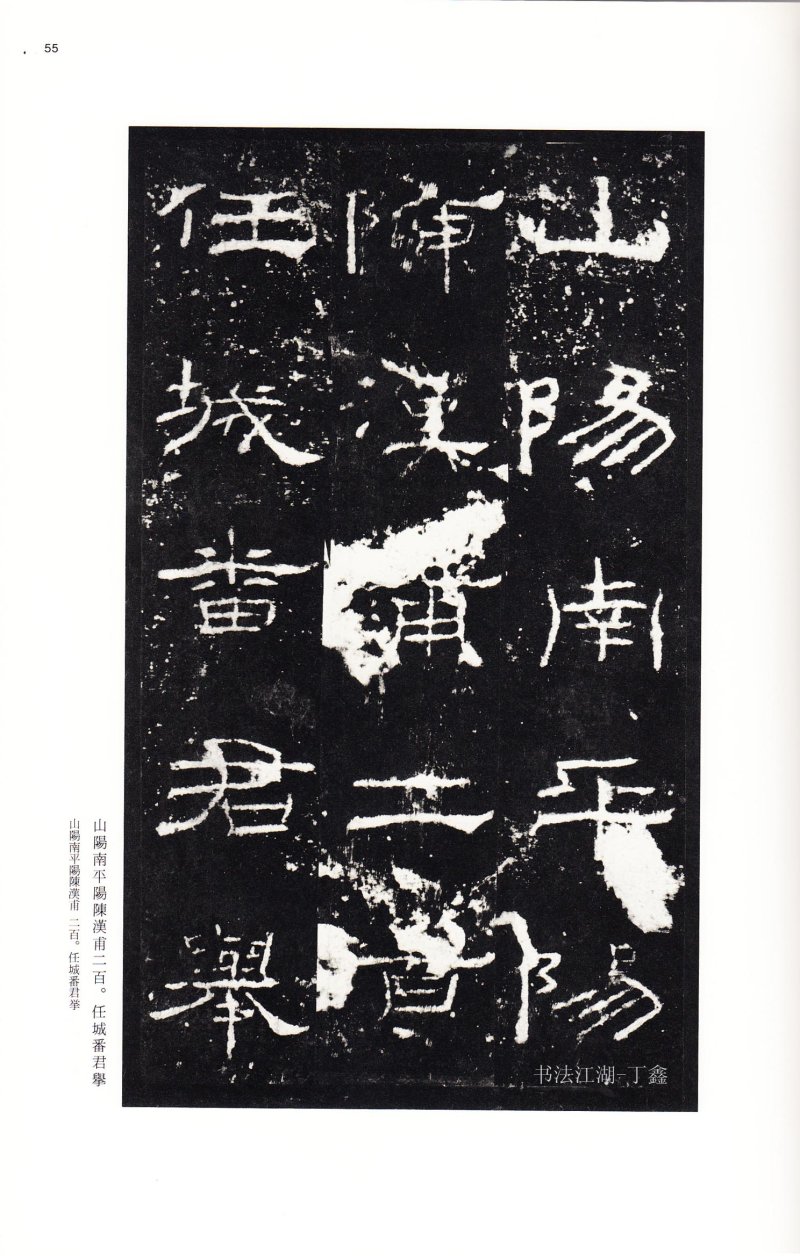 55
山陽南平陽
陳漢甫二百
任城番君舉
山陽南平陽陳漢甫二百。任城番君擧
山陽南平陽陳漢甫 二百。任城番君挙
书法江湖-丁鑫